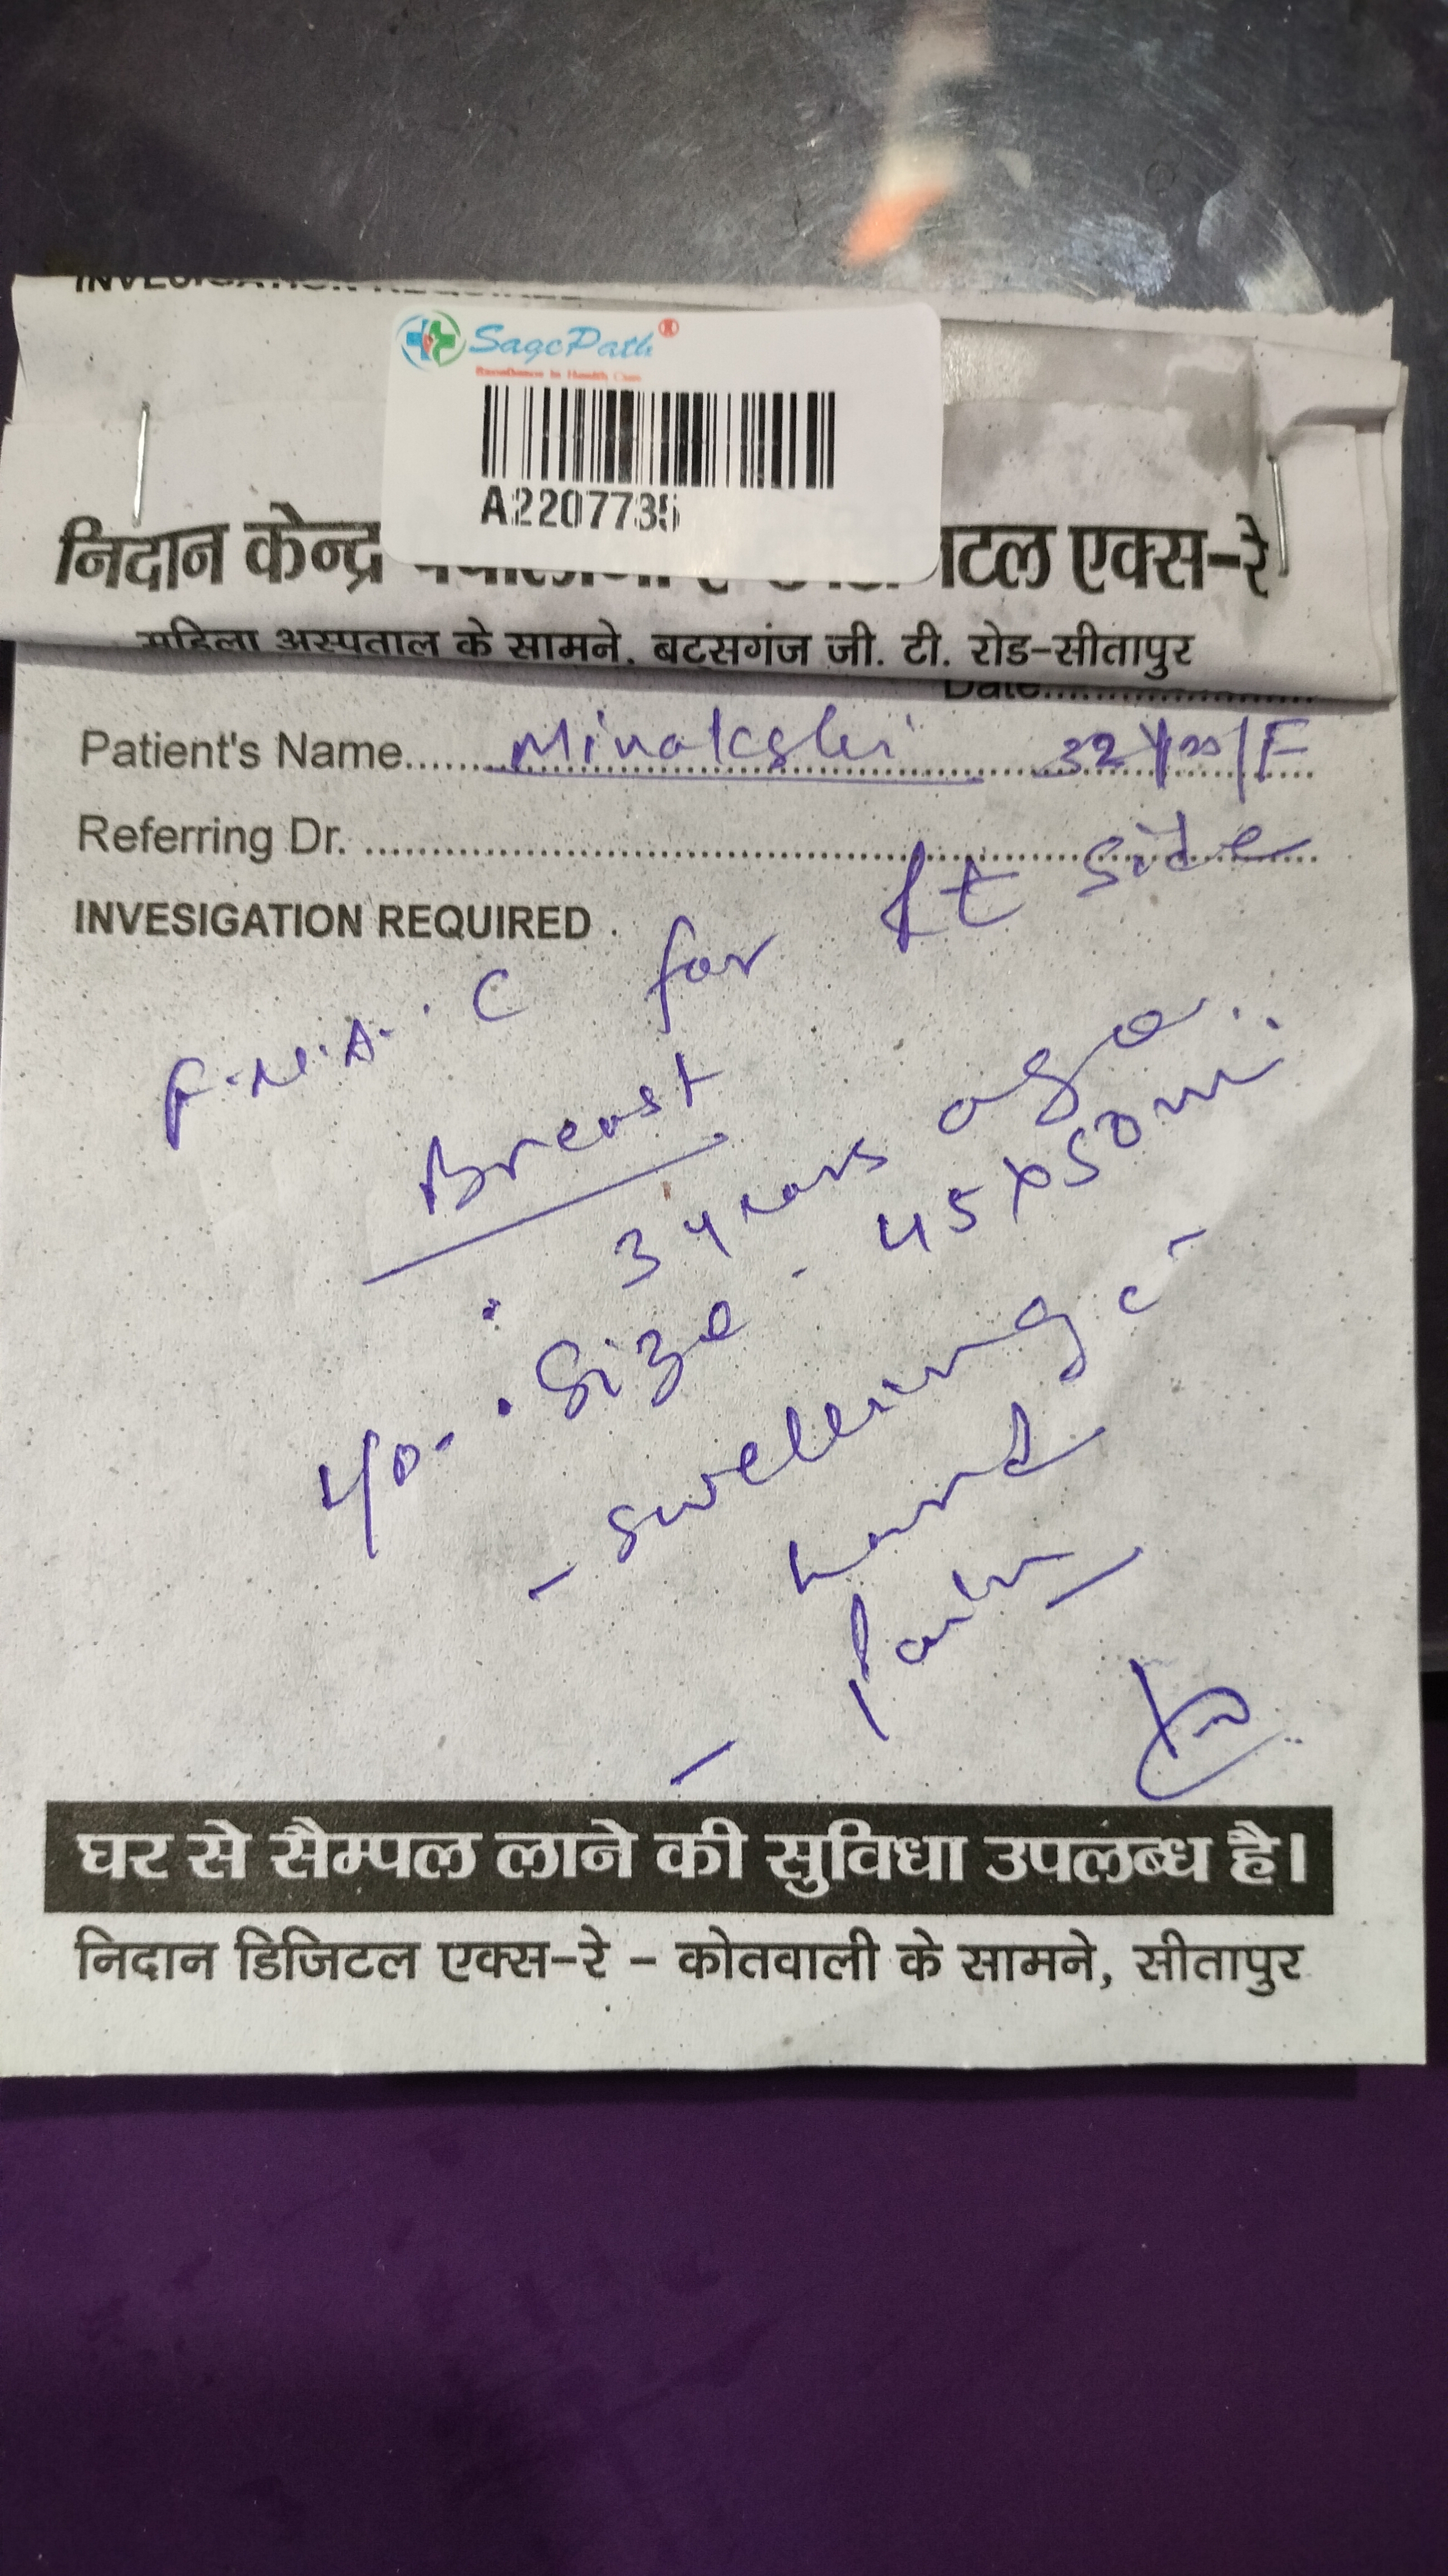 SagePath®
Excellence In Health Care
A2207735
निदान केन्द्र
टल एक्स-रे
महिला अस्पताल के सामने, बटसगंज जी. टी. रोड-सीतापुर
Date
Patient's Name Minakshi 32 Yrs/F
Referring Dr.
INVESIGATION REQUIRED
F.N.A.C for Rt side
Breast
3 years ago..
H/o. Size - 45x50 mm
- swelling c̄
hard
- Pain
घर से सैम्पल लाने की सुविधा उपलब्ध है।
निदान डिजिटल एक्स-रे - कोतवाली के सामने, सीतापुर